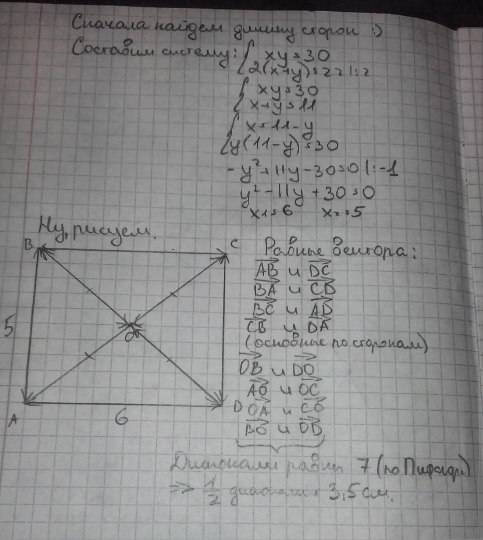 Сначала найдем длину сторон :)
Составим систему: { xy=30
2(x+y)=22 |:2
{ xy=30
x+y=11
{ x=11-y
y(11-y)=30
-y²+11y-30=0 |:-1
y²-11y+30=0
x₁=6 x₂=5
Ну, рисуем.
B C
5 O
A 6 D
Равные вектора:
AB и DC
BA и CD
BC и AD
CB и DA
(основные по сторонам)
OB и DO
AO и OC
OA и CO
BO и OD
Диагонали равны 7 (по Пифагору)
=> 1/2 диагонали = 3,5 см.